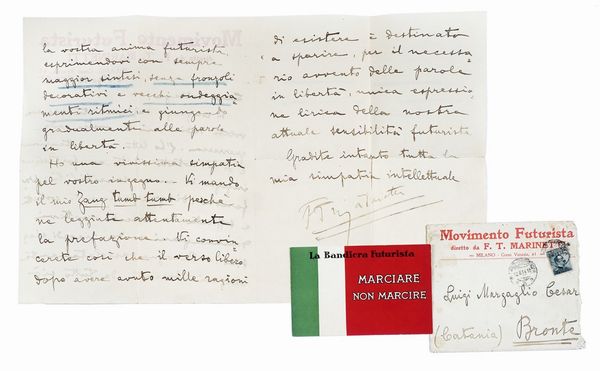 la vostra anima futurista
esprimendovi con sempre
maggior sintesi, senza fronzoli
decorativi e vecchi ondeggia-
menti ritmici, e giungendo
gradualmente alle parole
in libertà.
Ho una vivissima simpatia
pel vostro ingegno. Vi mando
il mio Zang tumb tumb perchè
ne leggiate attentamente
la prefazione. Vi convin
cerete così che il verso libero,
dopo avere avuto mille ragioni
di esistere è destinato
a sparire, per il necessa
rio avvento delle parole
in libertà, unica espressio
ne lirica della nostra
attuale sensibilità futurista
Gradite intanto tutta la
mia simpatia intellettuale
F. T. Marinetti
La Bandiera Futurista
MARCIARE
NON MARCIRE
Movimento Futurista
diretto da F. T. MARINETTI
— MILANO - Corso Venezia, 61
Luigi Margaglio Cesar
(Catania) Bronte